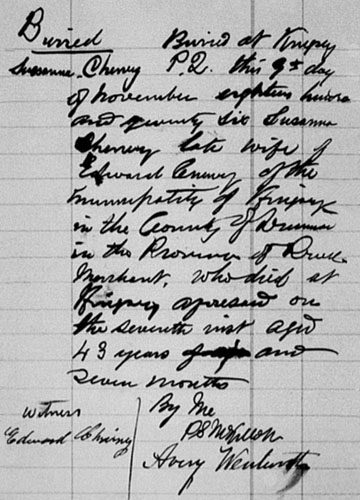 Buried Buried at Kingsey
Susanna Cheney P.Q. this 9th day
of November eighteen hundred
and seventy six Susanna
Cheney late wife of
Edward Cheney of the
Municipality of Kingsey
in the County of Drummond
in the Province of
Merchant, who died at
Kingsey aforesaid on
the seventh inst aged
43 years and
seven months
By Me
Witness
Edward Cheney
Avery Wentworth